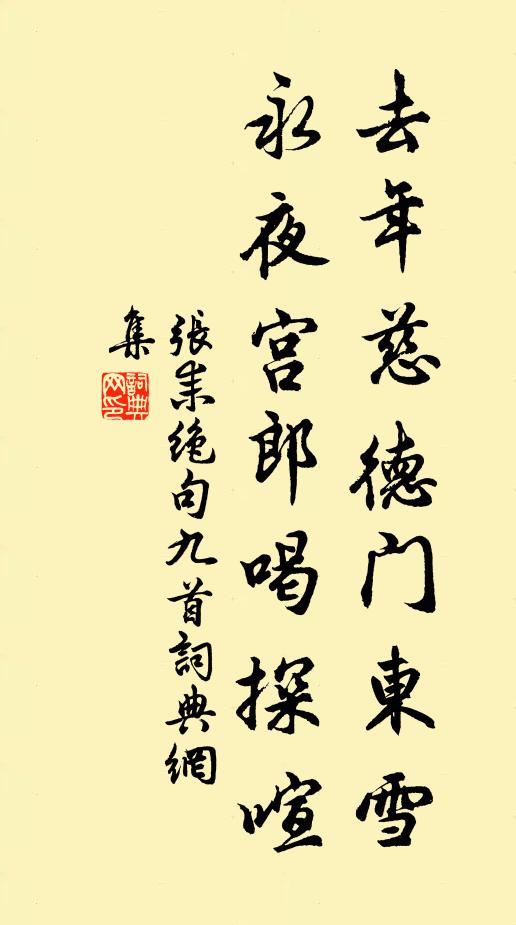 去年慈德門東雪
永夜宮郎喝探喧
張耒絶句九首詞典網
集
詞典網印